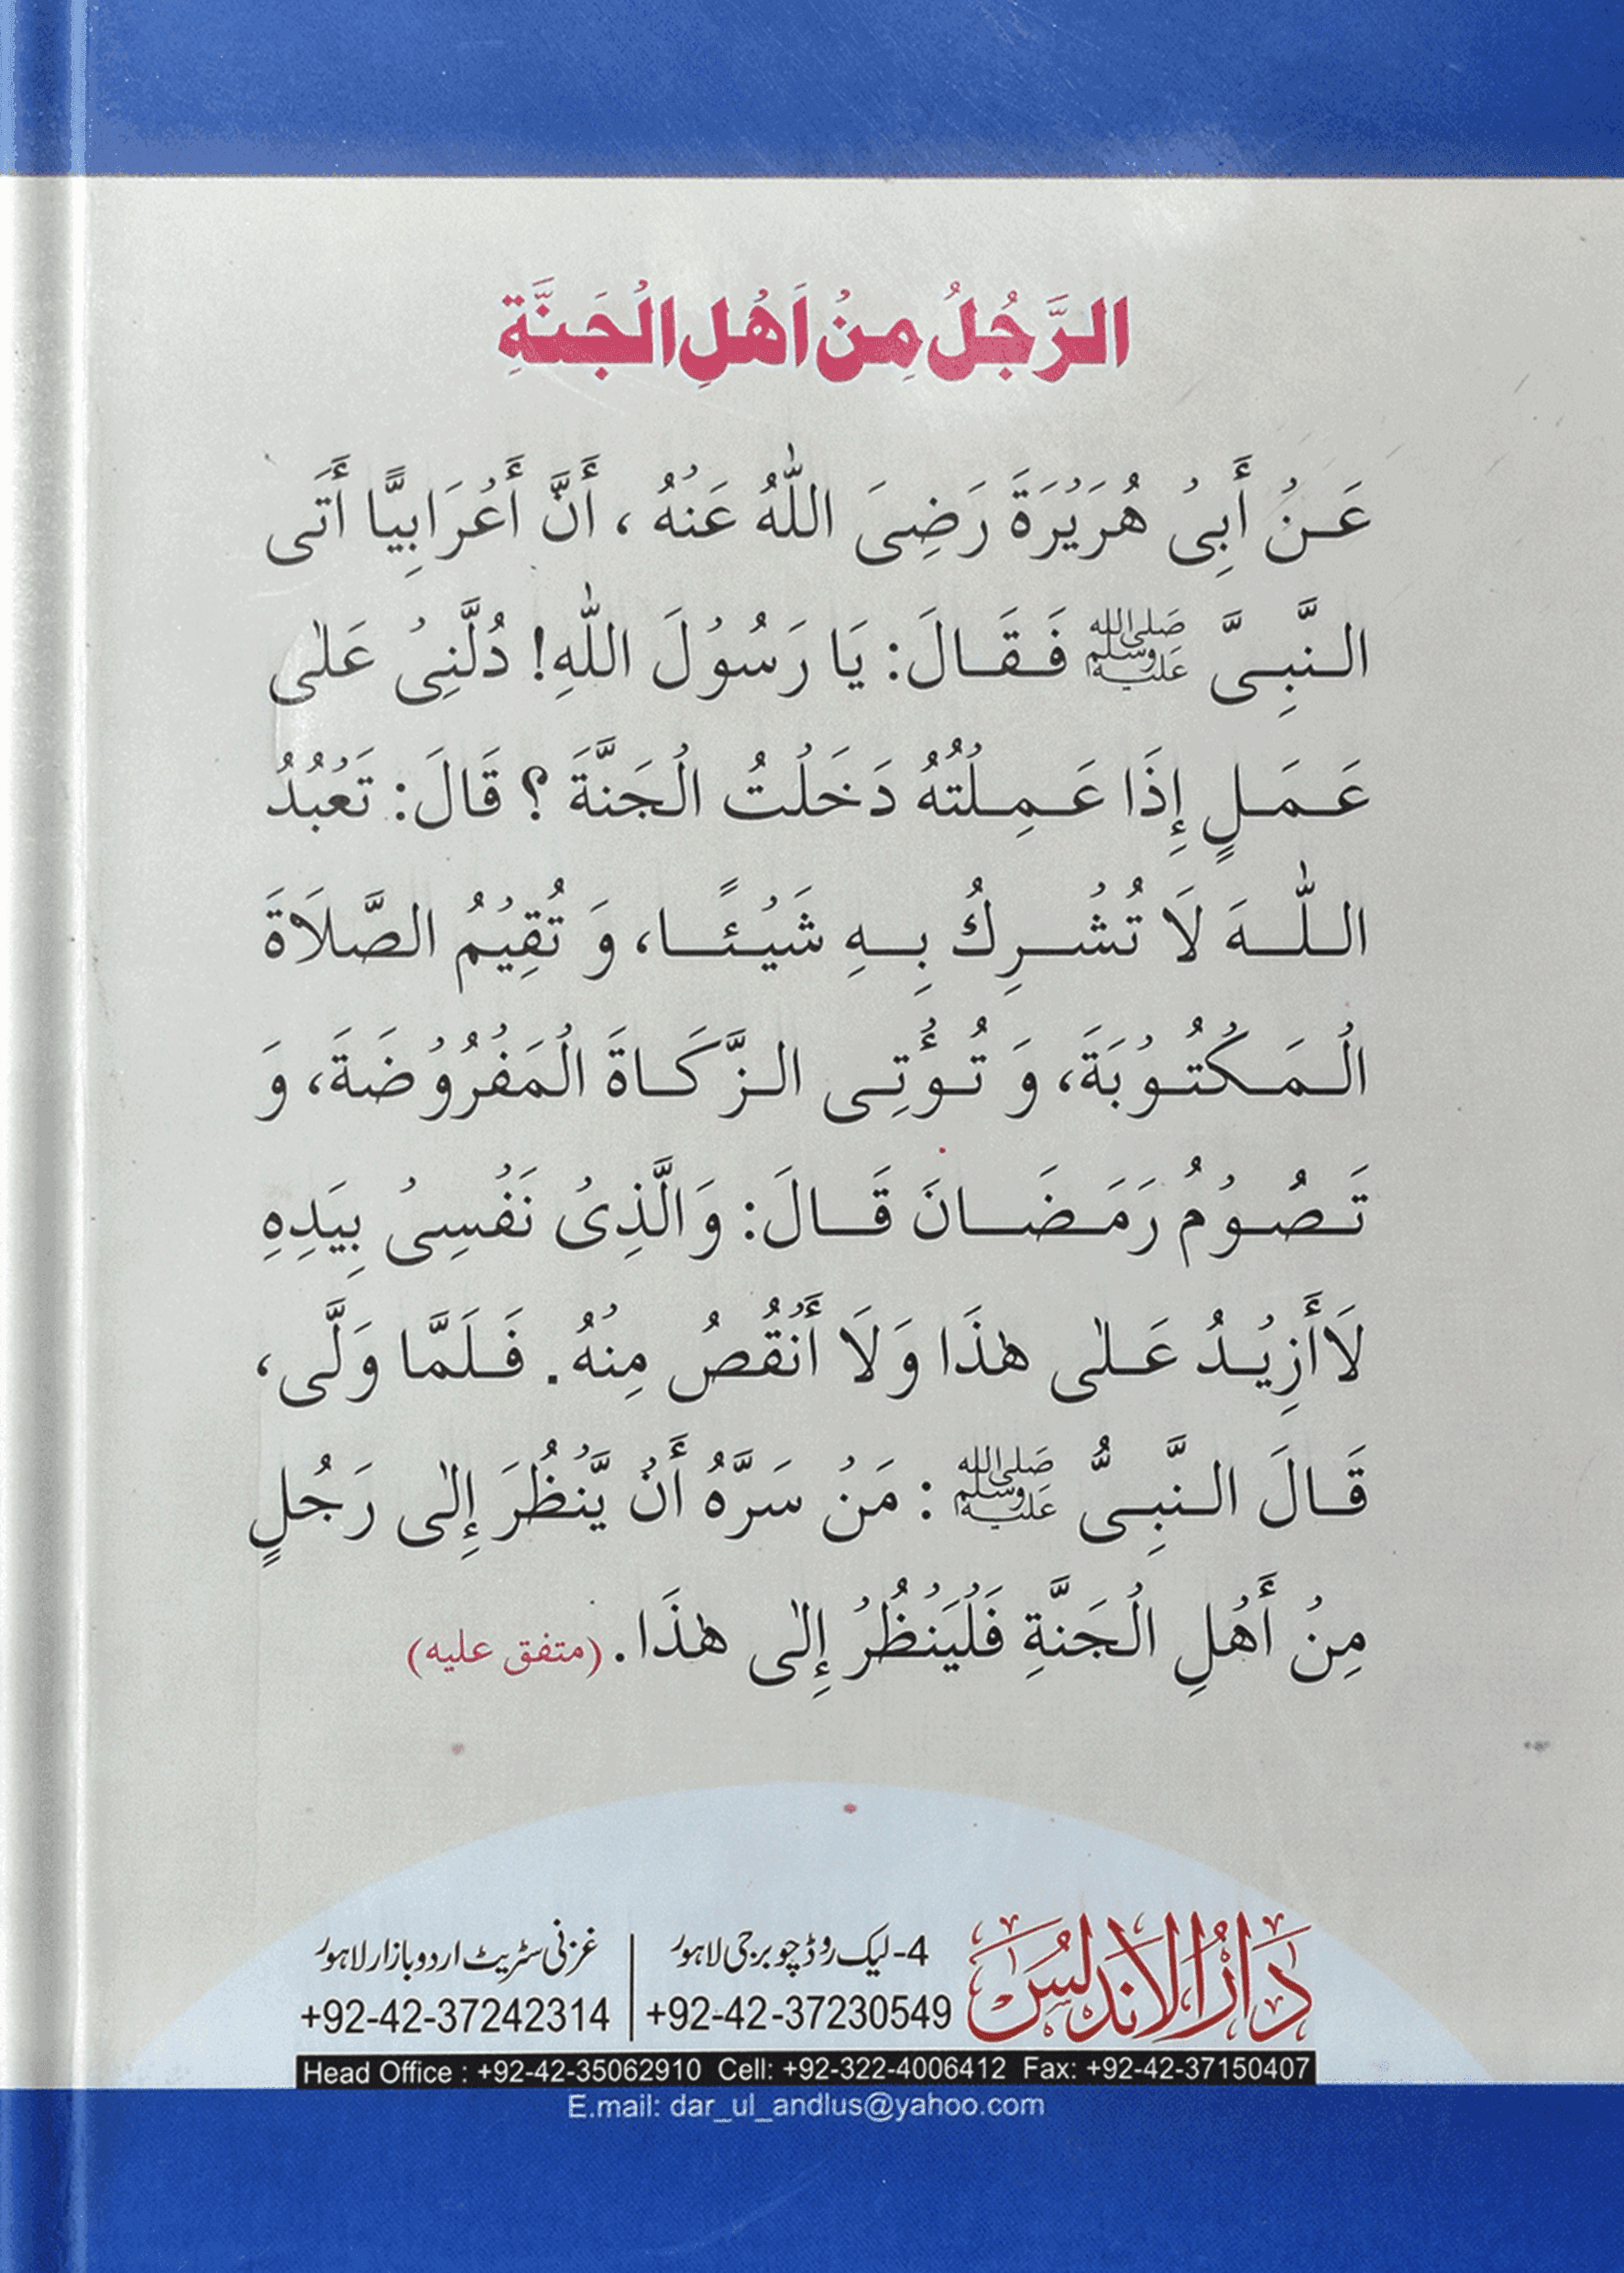 الرَّجُلُ مِنْ اَهْلِ الْجَنَّةِ
عَنْ أَبِیْ هُرَيْرَةَ رَضِیَ اللّٰهُ عَنْهُ ، أَنَّ أَعْرَابِيًّا أَتَی
النَّبِیَّ ﷺ فَقَالَ: يَا رَسُوْلَ اللّٰهِ! دُلَّنِیْ عَلٰی
عَمَلٍ إِذَا عَمِلْتُهُ دَخَلْتُ الْجَنَّةَ ؟ قَالَ: تَعْبُدُ
اللّٰهَ لَا تُشْرِكُ بِهِ شَيْئًا، وَ تُقِيْمُ الصَّلَاةَ
الْمَكْتُوْبَةَ، وَ تُؤْتِی الزَّكَاةَ الْمَفْرُوْضَةَ، وَ
تَصُوْمُ رَمَضَانَ قَالَ: وَالَّذِیْ نَفْسِیْ بِيَدِهِ
لَاأَزِيْدُ عَلٰی هٰذَا وَلَا أَنْقُصُ مِنْهُ. فَلَمَّا وَلَّی،
قَالَ النَّبِیُّ ﷺ : مَنْ سَرَّهُ أَنْ يَّنْظُرَ إِلٰی رَجُلٍ
مِنْ أَهْلِ الْجَنَّةِ فَلْيَنْظُرْ إِلٰی هٰذَا. (متفق عليه)
دَارُالاندلس
4- لیک روڈ چوبرجی لاہور
+92-42-37230549
غزنی سٹریٹ اردو بازار لاہور
+92-42-37242314
Head Office : +92-42-35062910 Cell: +92-322-4006412 Fax: +92-42-37150407
E.mail: dar_ul_andlus@yahoo.com